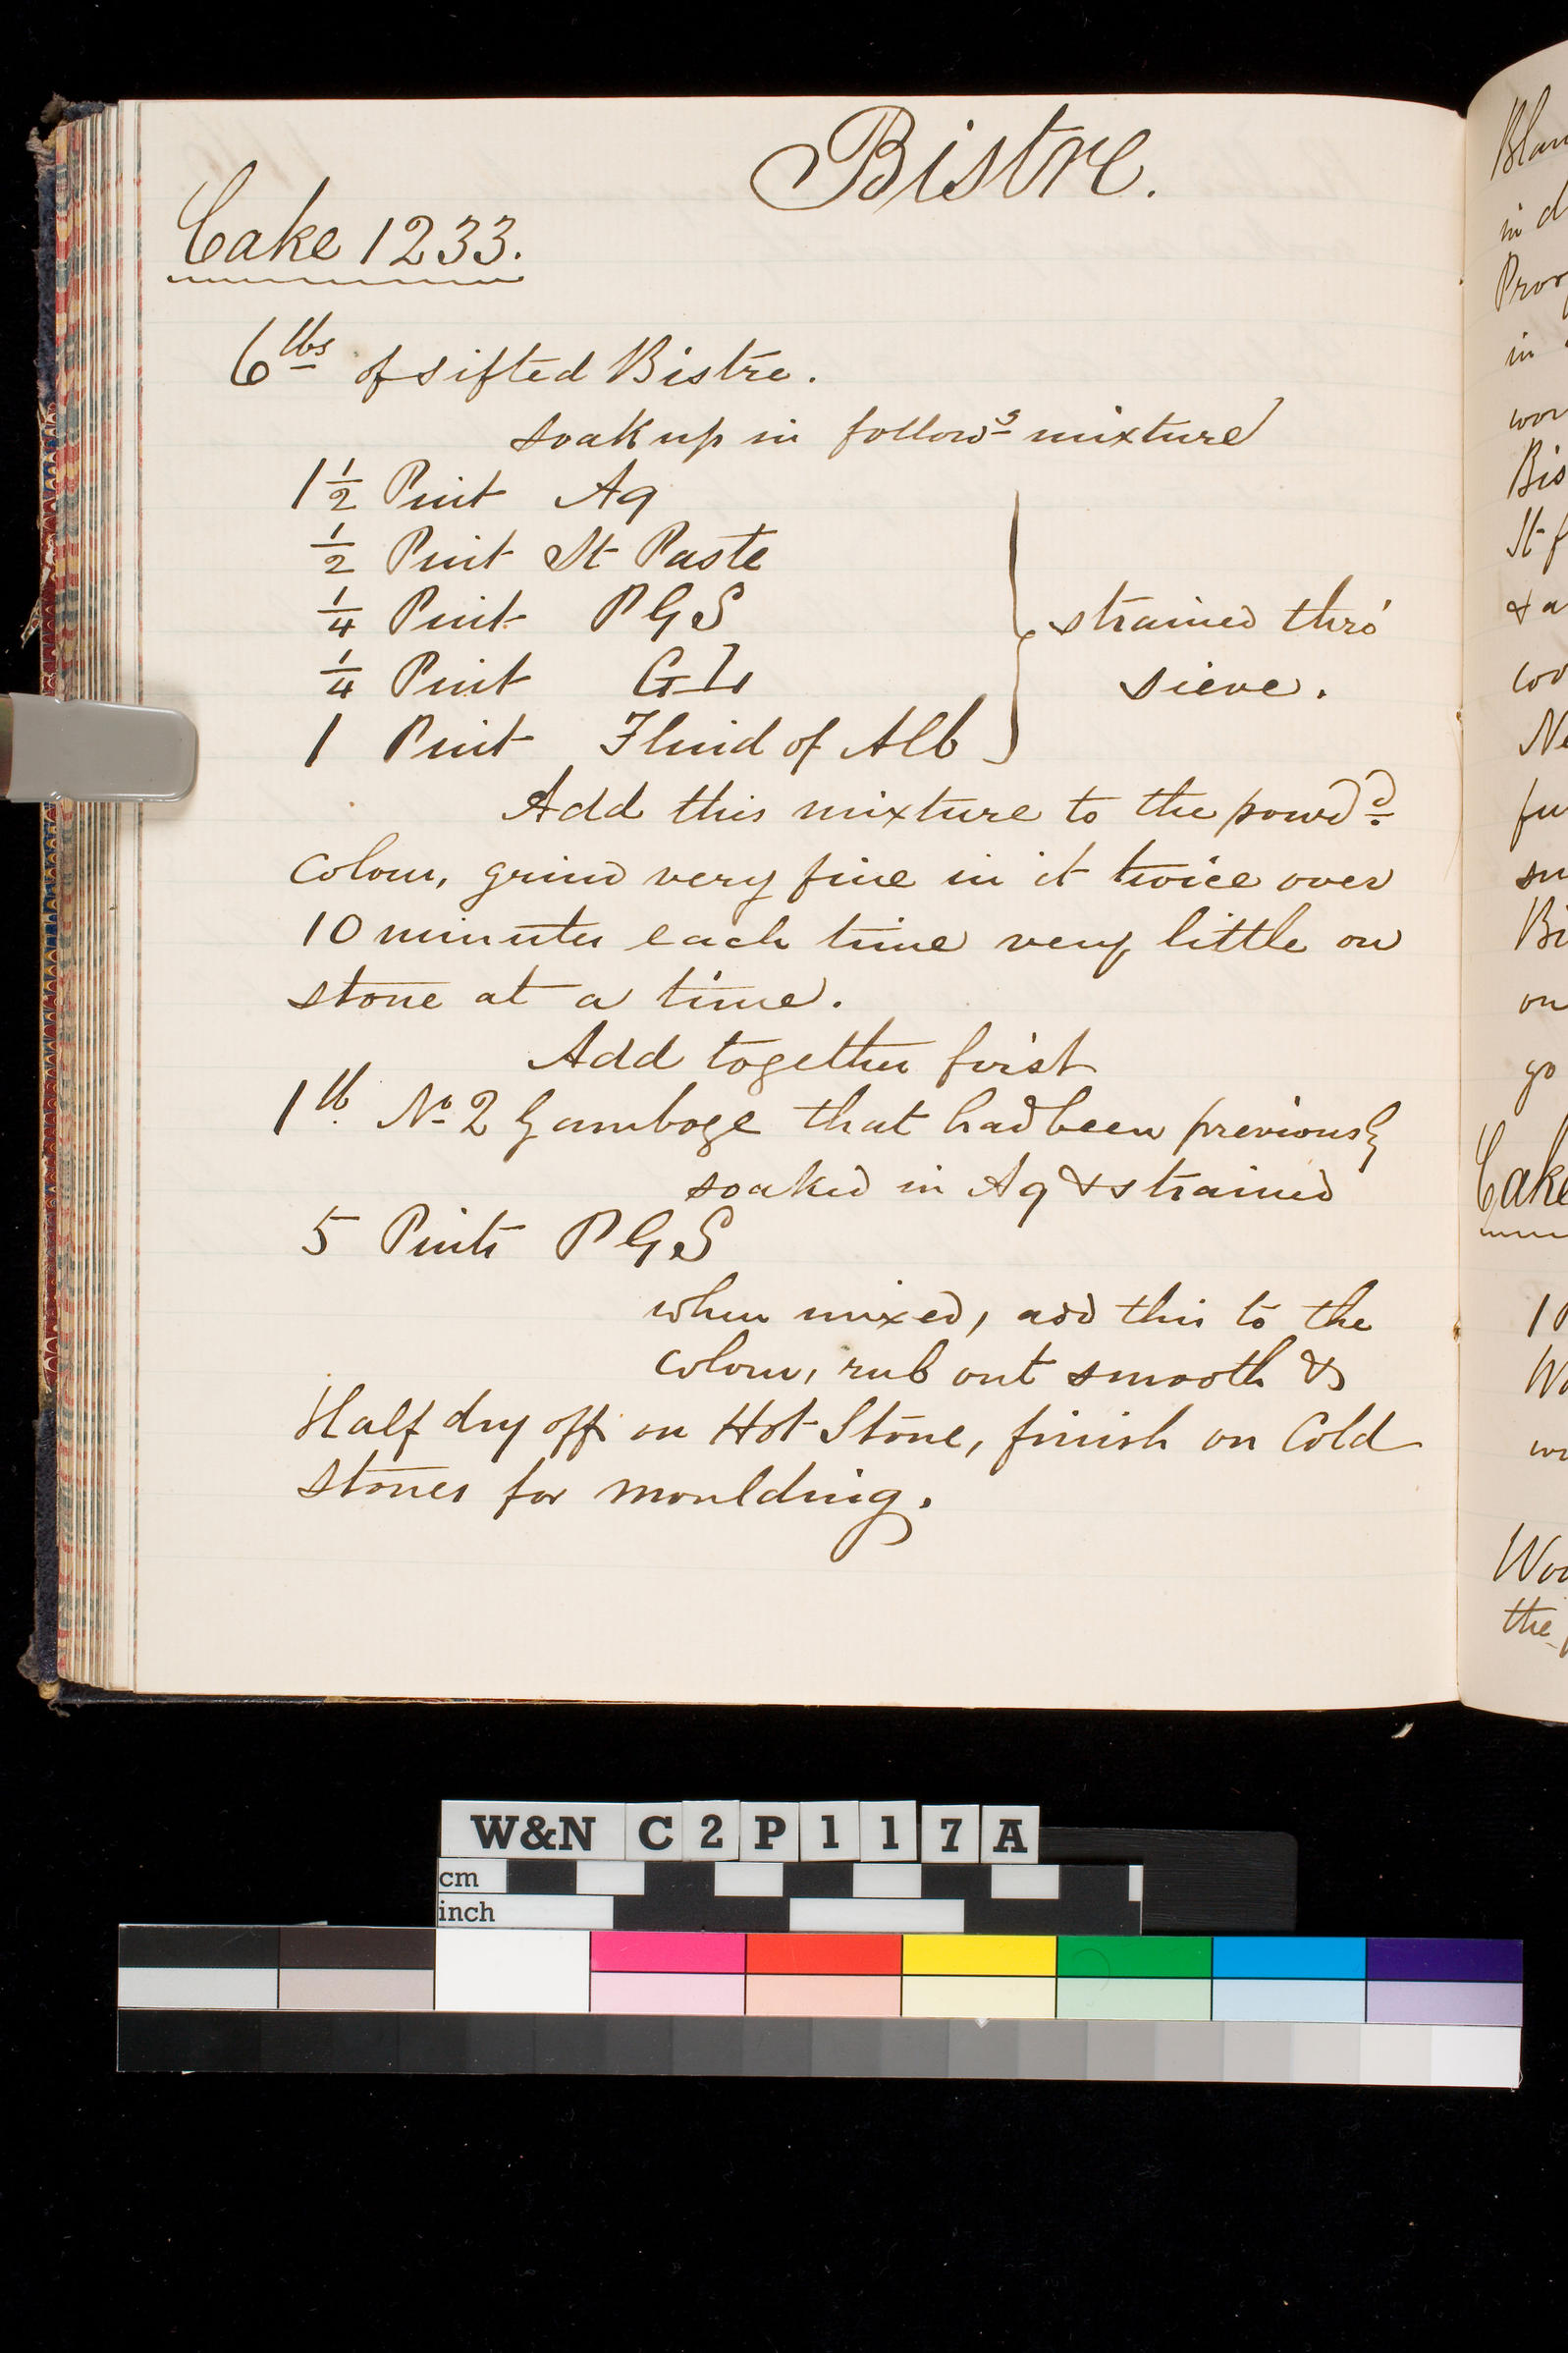 Bistre.
Cake 1233.
6 lbs of sifted Bistre.
soak up in follows mixture
1 1/2 Pint Aq
1/2 Pint St Paste
1/4 Pint P G S
1/4 Pint G L
1 Pint Fluid of Alb
strained thro'
sieve.
Add this mixture to the powdd.
colour, grind very fine in it twice over
10 minutes each time very little on
stone at a time.
Add together first
1 lb. No 2 Gamboge that had been previously
soaked in Aq & strained
5 Pints P G S
when mixed, add this to the
colour, rub out smooth &
Half dry off on Hot Stone, finish on Cold
stones for moulding.
in d
in
wor
Bis
St f
& a
coo
Ne
fu
su
Bi
on
go
Cake
Woo
the
W&N C2P117A
cm
inch